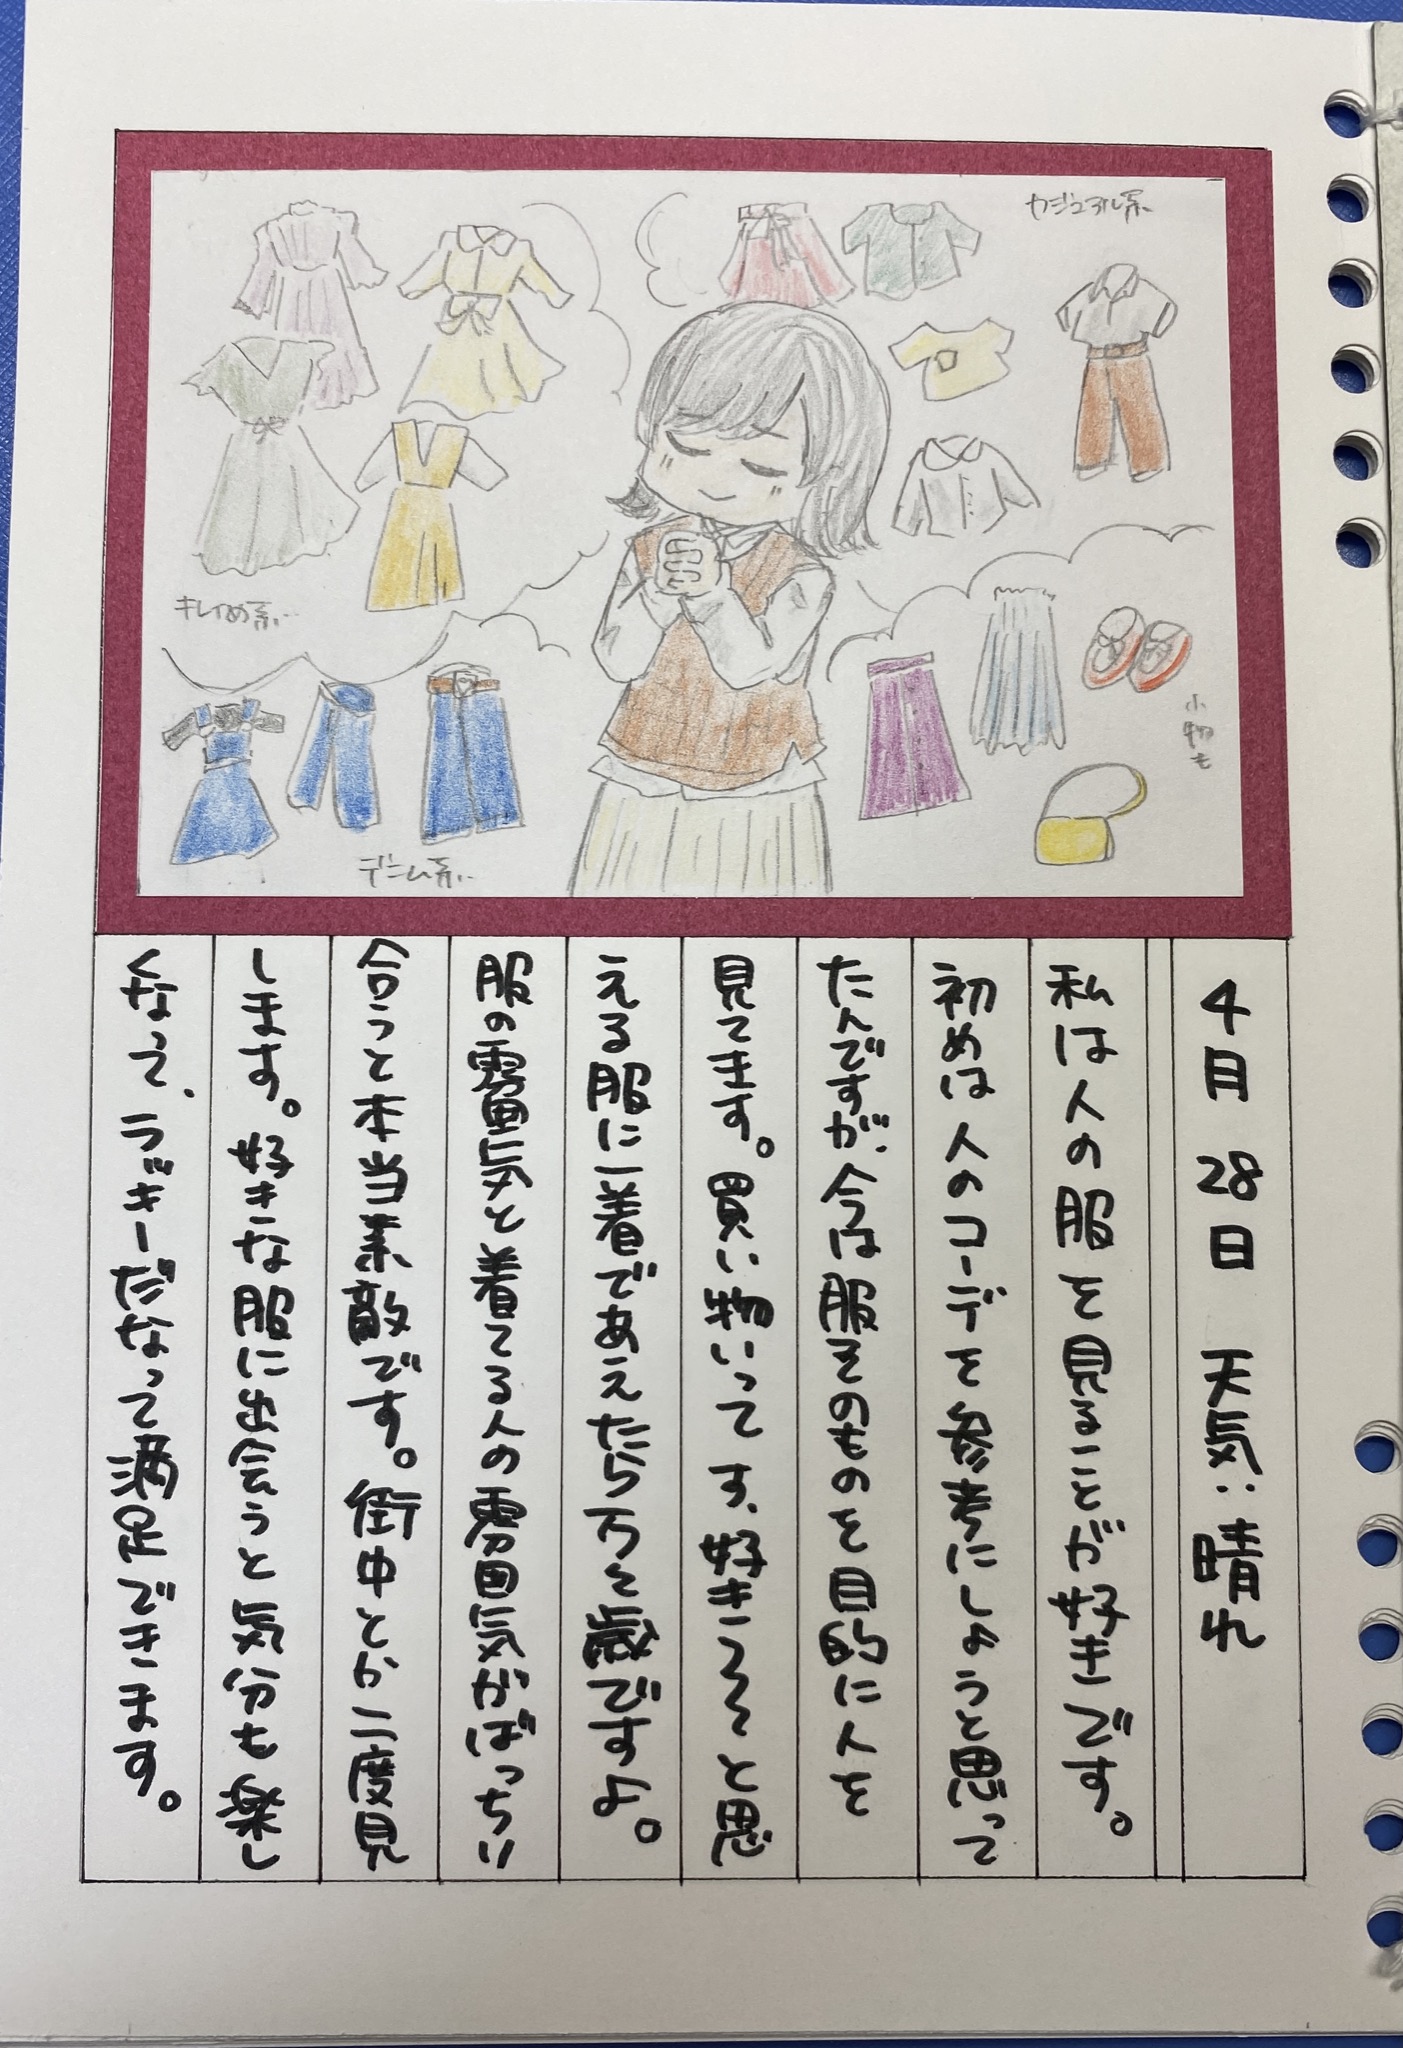 カジュアル系
キレイめ系
デニム系
小物も
4月28日 天気:晴れ
私は人の服を見ることが好きです。
初めは人のコーデを参考にしようと思って
たんですが、今は服そのものを目的に人を
見てます。買い物いってす、好きつ〜〜と思
える服に一着であえたら万々歳ですよ。
服の雰囲気と着てる人の雰囲気がばっちり
合うと本当素敵です。街中とか二度見
します。好きな服に出会うと気分も楽し
くなって、ラッキーだなって満足できます。